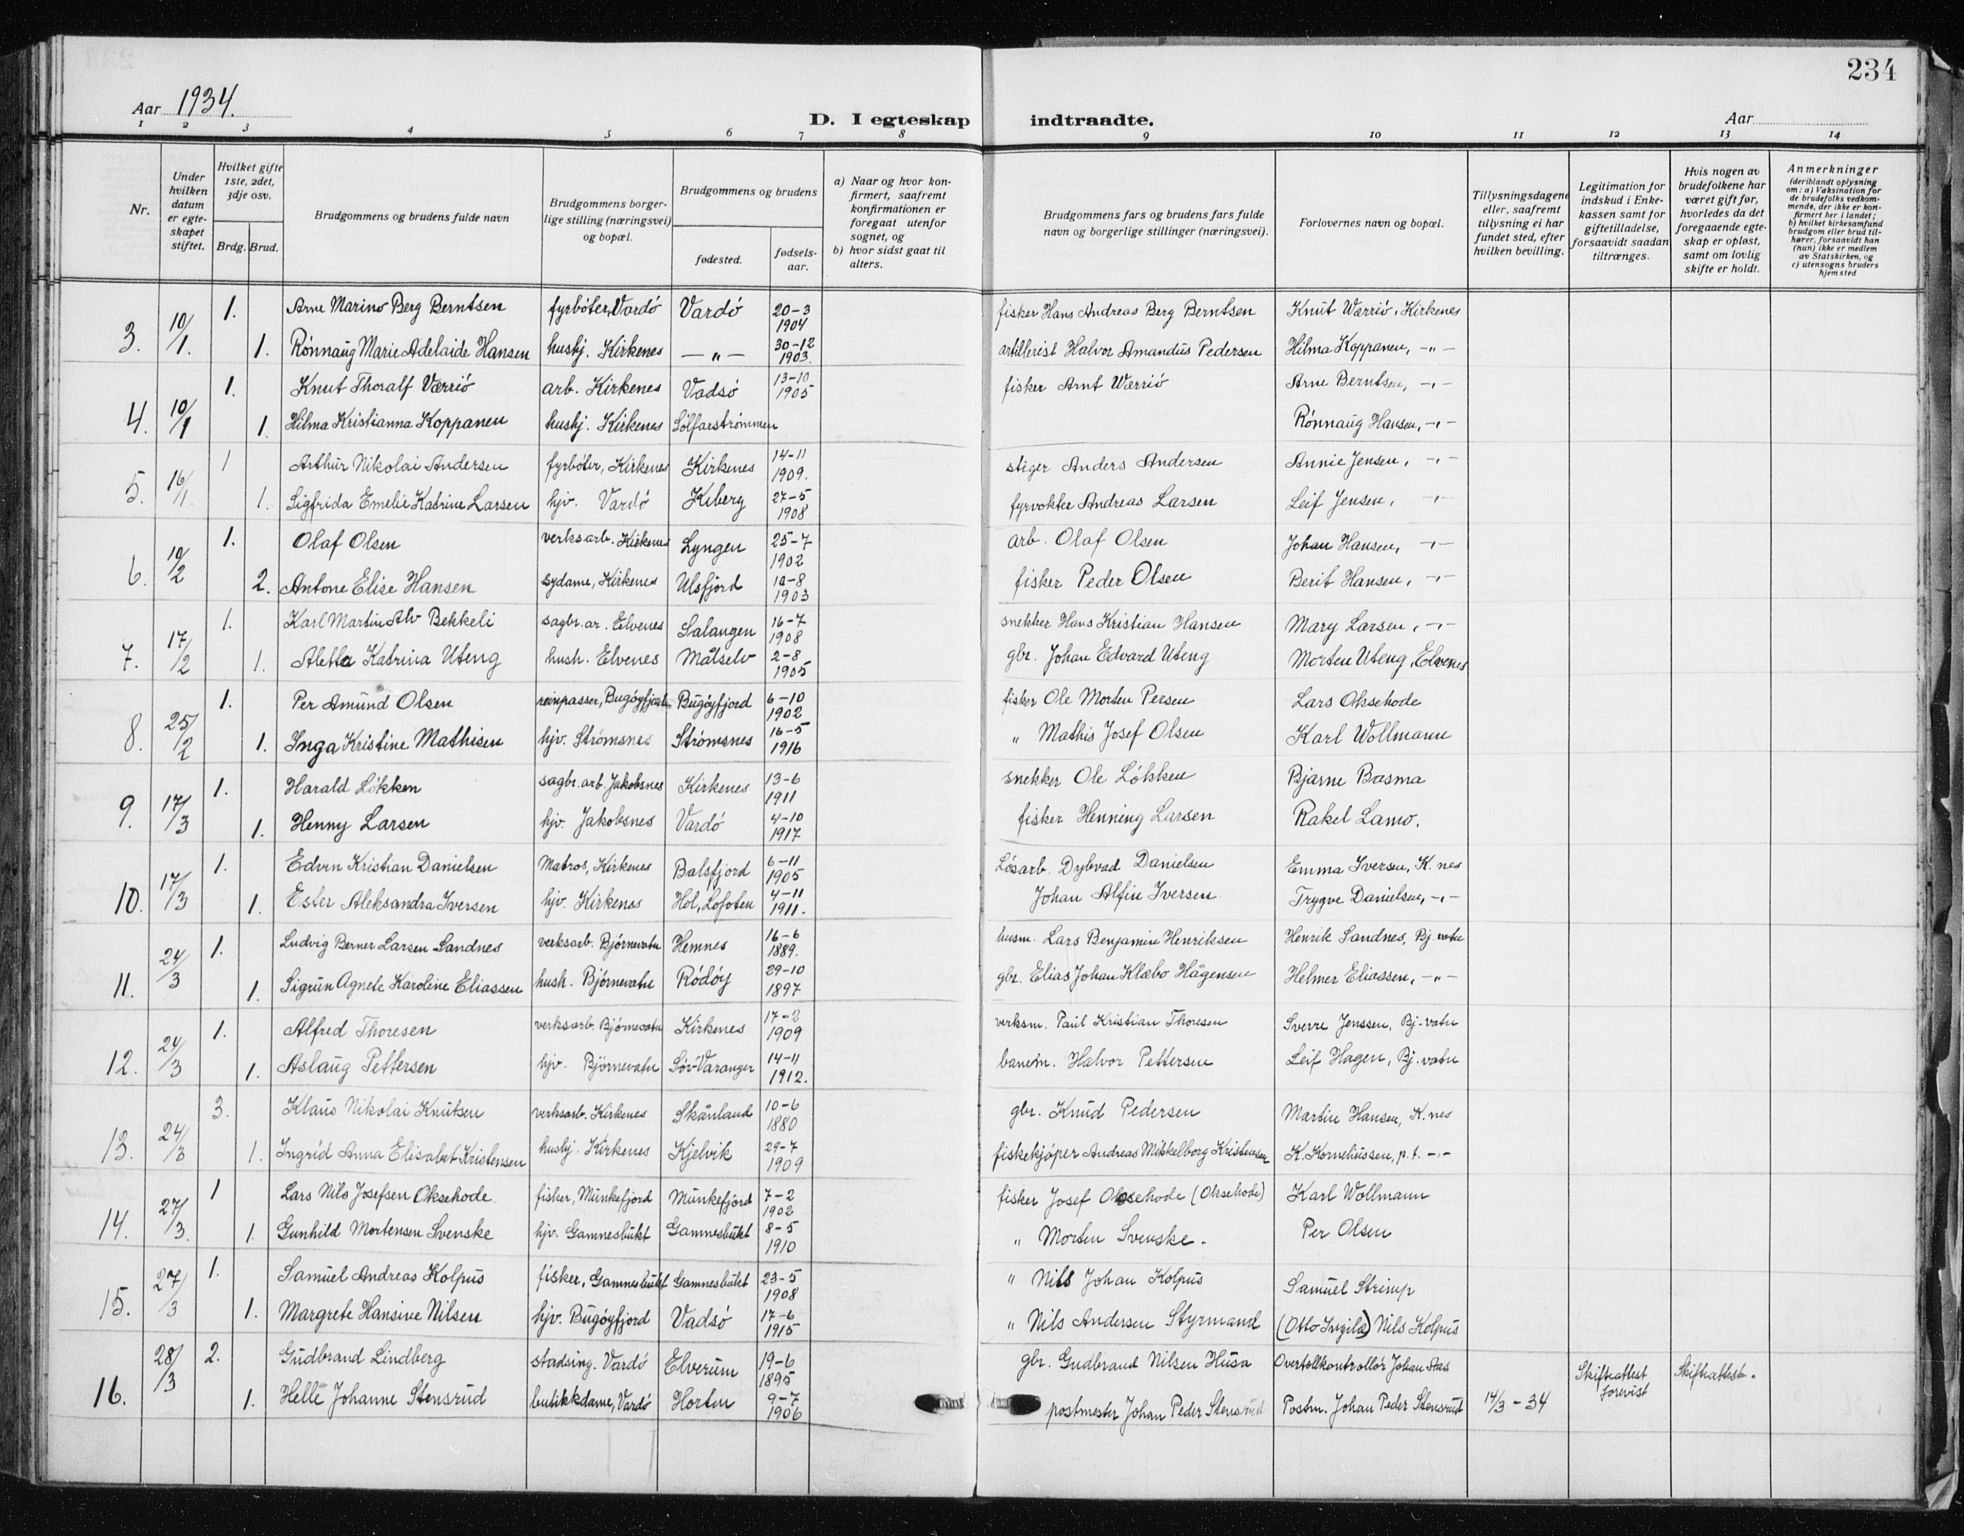 234
Aar 1934.
D. I egteskap indtraadte.
Aar
1 2 3 4 5 6 7 8 9 10 11 12 13 14
Nr.
Under hvilken datum er egteskapet stiftet.
Hvilket gifte 1ste, 2det, 3dje osv.
Brdg. Brud.
Brudgommens og brudens fulde navn
Brudgommens borgerlige stilling (næringsvei) og bopæl.
Brudgommens og brudens
fødested.
fødselsaar.
a) Naar og hvor konfirmert, saafremt konfirmationen er foregaat utenfor sognet, og
b) hvor sidst gaat til alters.
Brudgommens fars og brudens fars fulde navn og borgerlige stillinger (næringsvei).
Forlovernes navn og bopæl.
Tillysningsdagene eller, saafremt tillysning ei har fundet sted, efter hvilken bevilling.
Legitimation for indskud i Enkekassen samt for giftetilladelse, forsaavidt saadan tiltrænges.
Hvis nogen av brudefolkene har været gift før, hvorledes da det foregaaende egteskap er opløst, samt om lovlig skifte er holdt.
Anmerkninger
(deriblandt oplysning om: a) Vaksination for de brudefolks vedkommende, der ikke er konfirmert her i landet; b) hvilket kirkesamfund brudgom eller brud tilhører, forsaavidt han (hun) ikke er medlem av Statskirken, og c) utensogns bruders hjemsted
3. 10/1. 1. Arne Marino Berg Berntsen fyrbøter, Vardö Vardö 20-3 1904 fisker Hans Andreas Berg Berntsen Knut Wærriö, Kirkenes
1. Rønnaug Marie Adelaide Hansen hushj. Kirkenes —"— 30-12 1903. artillerist Halvor Amandus Pedersen Hilma Koppanen, -"-
4. 10/1 1. Knut Thoralf Værriö arb. Kirkenes Vadsö 13-10 1905 fisker Arnt Wærriö Arne Berntsen, -"-
1. Hilma Kristianna Koppanen hushj. Kirkenes Sølfarströmmen Rønnaug Hansen, -"-
5. 16/1. 1 Arthur Nikolai Andersen fyrböter, Kirkenes Kirkenes 14-11 1909. stiger Anders Andersen Annie Jensen, -"-
1. Sigfrida Emelie Katrine Larsen hjv. Vardö Kiberg 27-5 1908 fyrvokter Andreas Larsen Leif Jensen, -"-
6. 10/2 1. Olaf Olsen verksarb. Kirkenes Lyngen 25-7 1902 arb. Olaf Olsen Johan Hansen, -"-
2. Antone Elise Hansen sydame, Kirkenes Ulsfjord 10-8 1903 fisker Peder Olsen Berit Hansen, -"-
7. 17/2 1. Karl Martin Alv Bekkeli sagbr. ar. Elvenes Salangen 16-7 1908 snekker Hans Kristian Hansen Mary Larsen, -"-
1. Aletta Katrina Uteng hush. Elvenes Målselv 2-8 1905 gbr. Johan Edvard Uteng Morten Uteng, Elvenes
8. 25/2 1. Per Amund Olsen reinpasser, Bugöyfjord Bugöyfjord 6-10 1902 fisker Ole Morten Persen Lars Oksehode
1. Inga Kristine Mathisen hjv. Strömsnes Strömsnes 16-5 1916 " Mathis Josef Olsen Karl Wollmann
9. 17/3 1. Harald Lökken sagbr. arb. Jakobsnes Kirkenes 13-6 1911 snekker Ole Lökken Bjarne Basma
1. Henny Larsen hjv. Jakobsnes Vardö 4-10 1917 fisker Henning Larsen Rakel Lamo.
10. 17/3 1. Edvin Kristian Danielsen Matros, Kirkenes Balsfjord 6-11 1905 Løsarb. Dybvad Danielsen Emma Iversen, K.nes
1. Ester Aleksandra Iversen hjv. Kirkenes Hol, Lofoten 4-11 1911. Johan Alfin Iversen Trygve Danielsen, -"-
11. 24/3 1. Ludvig Berner Larsen Sandnes verksarb. Bjørnevatn Hemnes 16-6 1889. husm. Lars Benjamin Henriksen Henrik Sandnes, Bj.vatn
1. Sigrun Agnete Karoline Eliassen hush. Bjørnevatn Rödöy 29-10 1897 gbr. Elias Johan Klæbo Hågensen Helmer Eliassen, -"-
12. 24/3 1. Alfred Thoresen verksarb. Bjørnevatn Kirkenes 17-2 1909 verksm. Paul Kristian Thoresen Sverre Jenssen, Bj-vatn
1. Aslaug Pettersen hjv. Björnevatn Sør-Varanger 14-11 1912. banem. Halvor Pettersen Leif Hagen, Bj.vatn
13. 24/3 3. Klaus Nikolai Knutsen verksarb. Kirkenes Skånland 10-6 1880 gbr. Knud Pedersen Martin Hansen, K.nes
1. Ingrid Anna Elisabet Kristensen hushj. Kirkenes Kjelvik 29-7 1909 fiskekjöper Andreas Mikkelborg Kristensen K. Korneliussen, p.t. -"-
14. 27/3. 1 Lars Nils Josefsen Oksehode fisker, Munkefjord Munkefjord 7-2 1902 fisker Josef Oksehode (Oksehode) Karl Wollmann
1. Gunhild Mortensen Svenske hjv. Gamnesbukt Gamnesbukt 8-5 1910 " Morten Svenske. Per Olsen
15. 27/3 1. Samuel Andreas Kolpus fisker, Gamnesbukt Gamnesbukt 23-5 1908 " Nils Johan Kolpus Samuel Strimp
1. Margrete Hansine Nilsen hjv. Bugöyfjord Vadsö 17-6 1915 " Nils Andersen Styrmand (Otto Ingilæ) Nils Kolpus
16. 28/3 2. Gudbrand Lindberg stadsing. Vardö Elverum 19-6 1895 gbr. Gudbrand Nilsen Husa Overtollkontrollör Johan Aas Skifteattest forevist Skifteattest.
1. Helle Johanne Stensrud butikkdame, Vardö Horten 9-7 1906 postmester Johan Peder Stensrud Postm. Johan Peder Stensrud 17/3-34